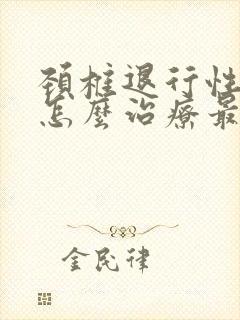 頚椎退行性
怎麼治療最
金民律